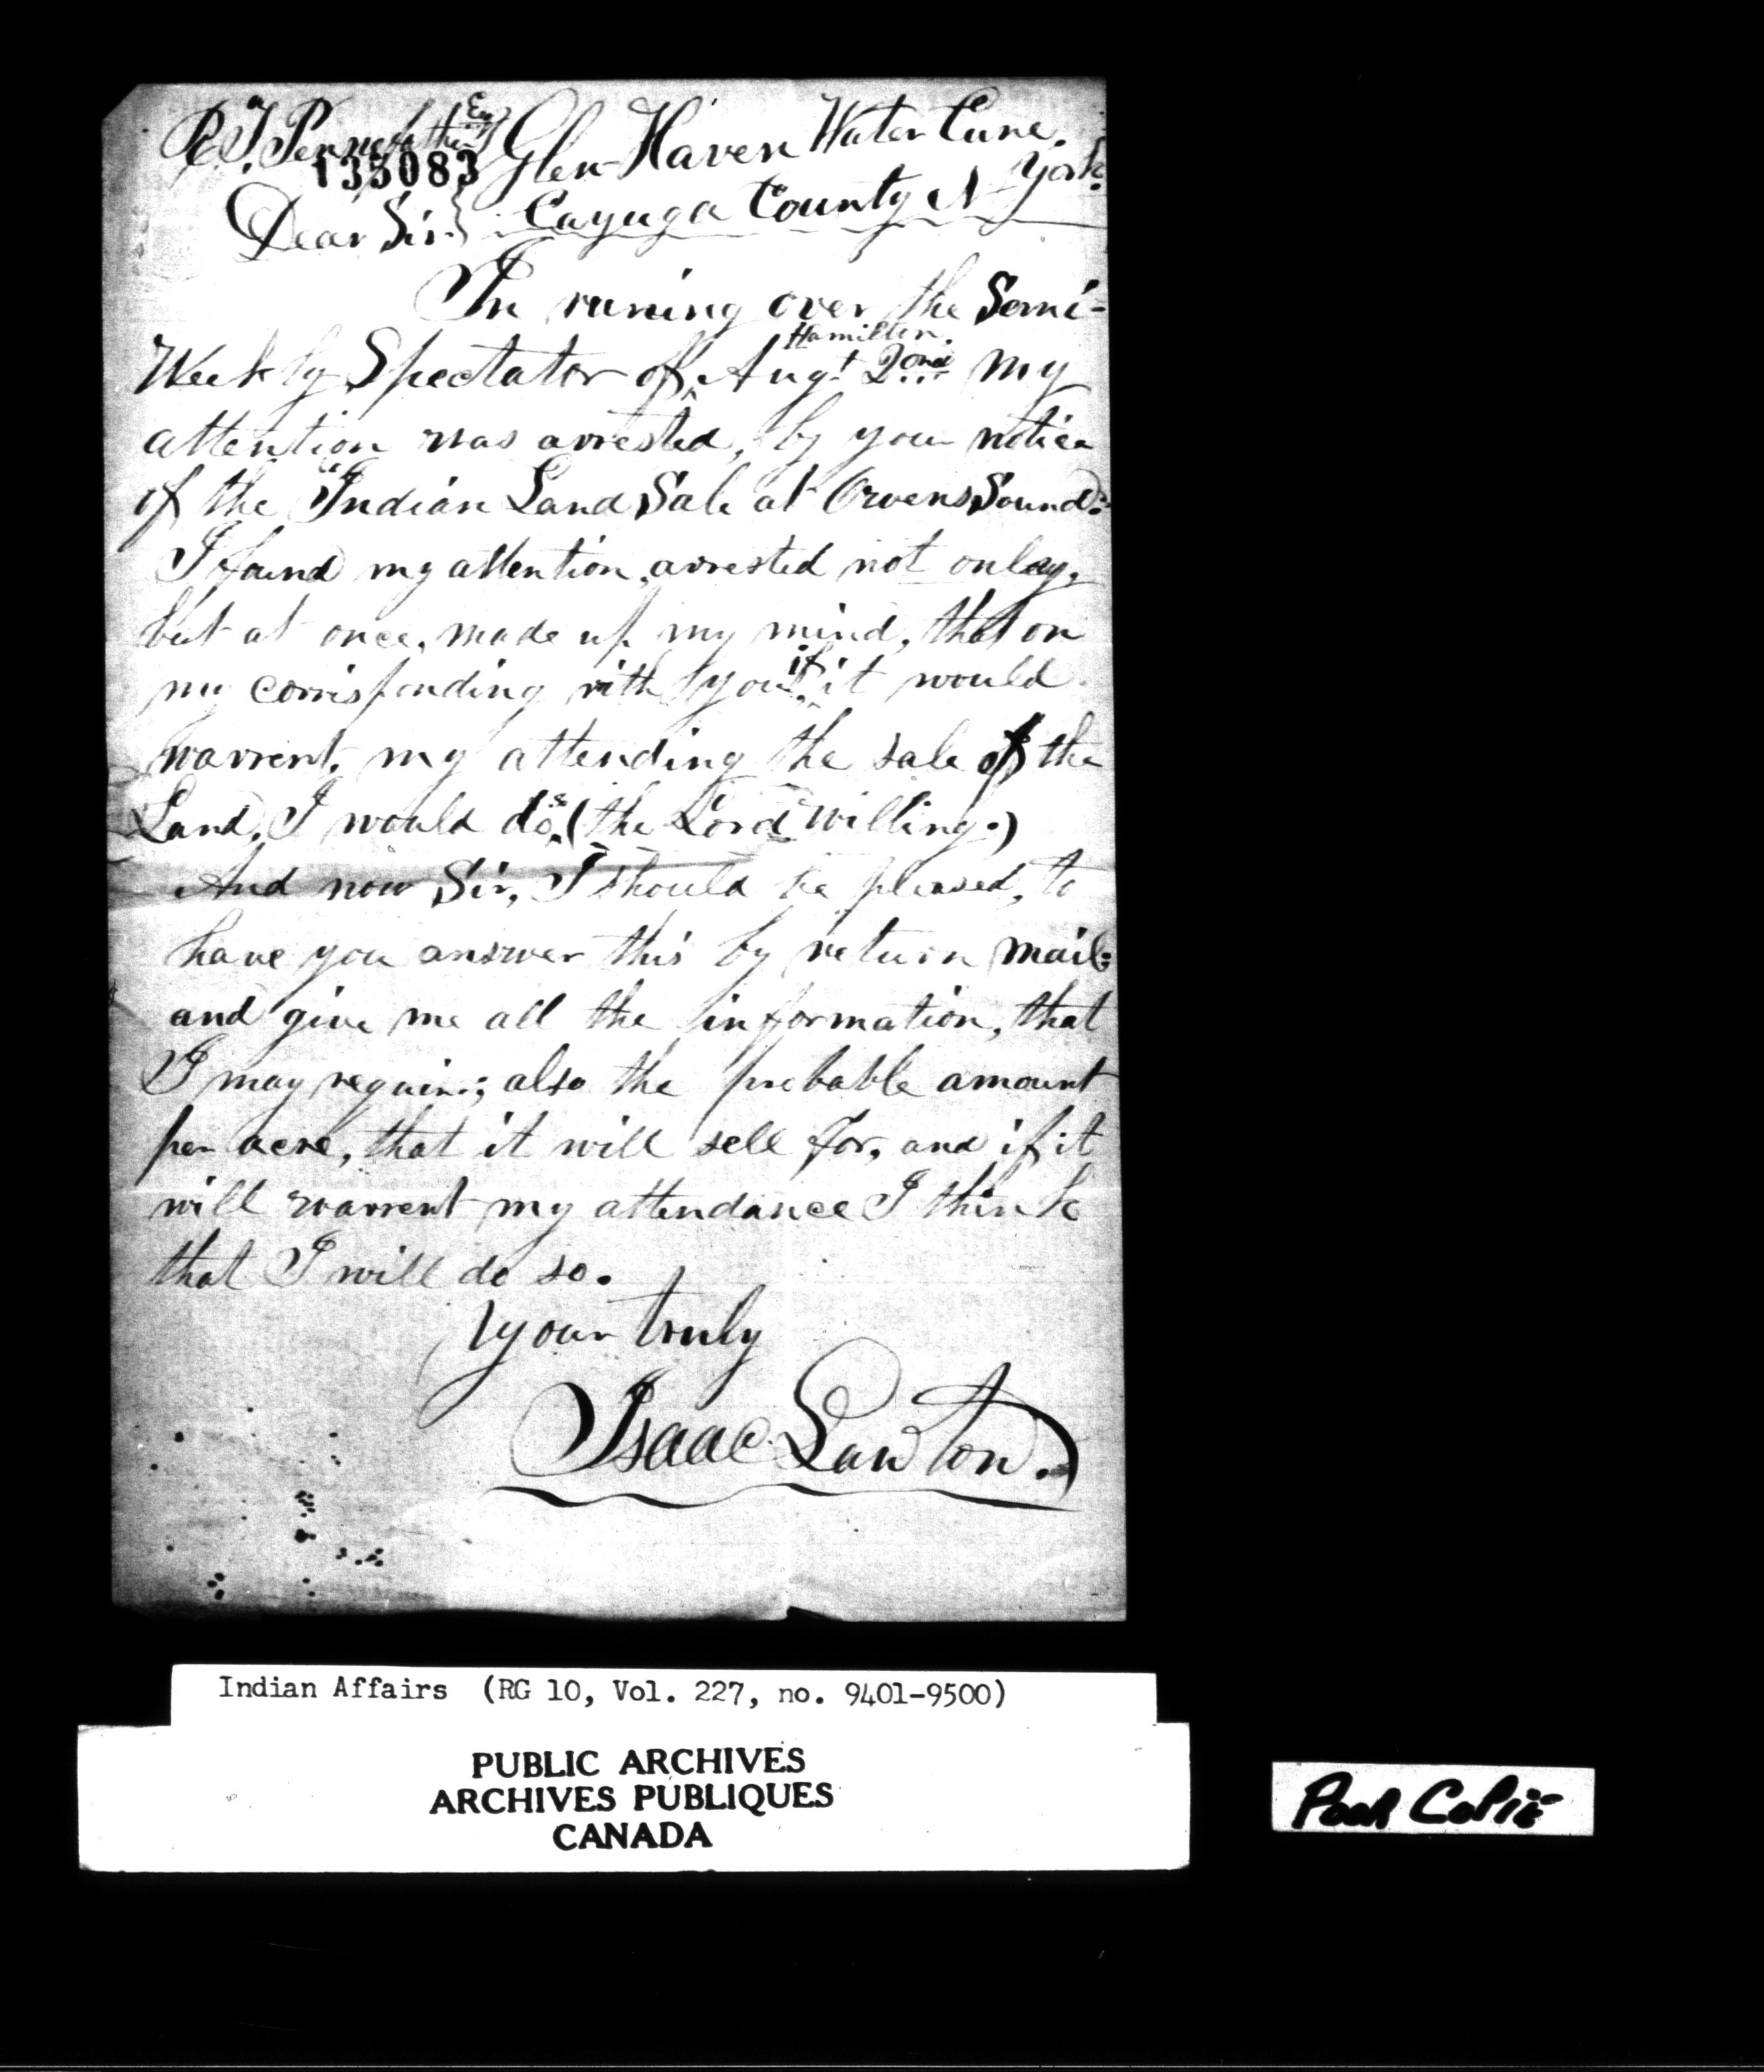 R. T. Pennefather Esq
133083
Glen-Haven Water Cure.
Cayuga County N York.
Dear Sir.
In runing over the Semi-
Weekly Spectator of Hamilton. Augt 2ond my
attention was arrested, by your notice
of the "Indian Land Sale at Owens Sound:
I found my attention, arrested not onley,
but at once, made up my mind, that on
my corrisponding with you, if it would
warrent, my attending the sale of the
Land, I would do so (the Lord willing.)
And now Sir, I should be pleased, to
have you answer this by return mail:
and give me all the information, that
I may require; also the probable amount
per acre, that it will sell for, and if it
will warrent my attendance I think
that I will do so.
Your truly
Isaac Lawton.
Indian Affairs (RG 10, Vol. 227, no. 9401-9500)
PUBLIC ARCHIVES
ARCHIVES PUBLIQUES
CANADA
Poor Copie